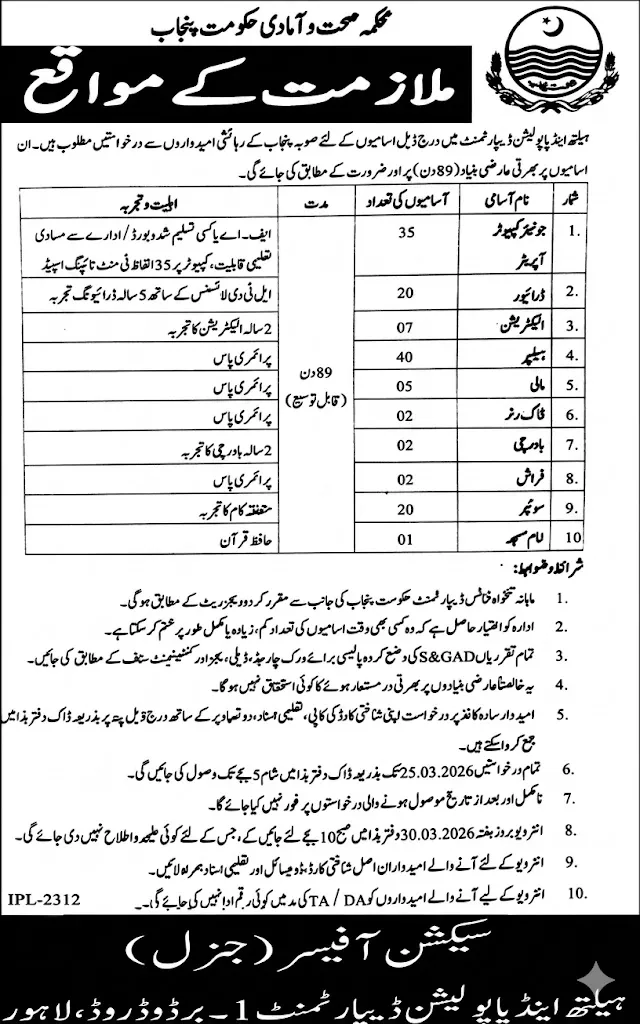 محکمہ صحت و آبادی حکومت پنجاب
ملازمت کے مواقع
ہیلتھ اینڈ پاپولیشن ڈیپارٹمنٹ میں درج ذیل اسامیوں کے لئے صوبہ پنجاب کے رہائشی امیدواروں سے درخواستیں مطلوب ہیں۔ ان
اسامیوں پر بھرتی عارضی بنیاد (89 دن) پر اور ضرورت کے مطابق کی جائے گی۔
شمار نام آسامی آسامیوں کی تعداد مدت اہلیت و تجربہ
1. جونیئر کمپیوٹر آپریٹر 35 ایف۔ اے یا کسی تسلیم شدہ بورڈ / ادارے سے مساوی
تعلیمی قابلیت، کمپیوٹر پر 35 الفاظ فی منٹ ٹائپنگ اسپیڈ
2. ڈرائیور 20 ایل ٹی دی لائسنس کے ساتھ 5 سالہ ڈرائیونگ تجربہ
3. الیکٹریشن 07 2 سالہ الیکٹریشن کا تجربہ
4. ہیلپر 40 پرائمری پاس
89 دن
(قابل توسیع)
5. مالی 05 پرائمری پاس
6. ڈاک رنر 02 پرائمری پاس
7. باورچی 02 2 سالہ باورچی کا تجربہ
8. فراش 02 پرائمری پاس
9. سوئپر 20 متعلقہ کام کا تجربہ
10 امام مسجد 01 حافظ قرآن
شرائط و ضوابط:
1. ماہانہ تنخواہ فنانس ڈیپارٹمنٹ حکومت پنجاب کی جانب سے مقرر کردہ ویجز ریٹ کے مطابق ہوگی۔
2. ادارہ کو اختیار حاصل ہے کہ وہ کسی بھی وقت اسامیوں کی تعداد کم، زیادہ یا مکمل طور پر ختم کر سکتا ہے۔
3. تمام تقرریاں S&GAD کی وضع کردہ پالیسی برائے ورک چارجڈ، ڈیلی، یجز اور کنٹینجنٹ سٹاف کے مطابق کی جائیں۔
4. یہ خالصتاً عارضی بنیادوں پر بھرتی در مستعار ہوئے کا کوئی استحقاق نہیں ہوگا۔
5. امیدوار سادہ کاغذ پر درخواست اپنی شناختی کارڈ کی کاپی، تعلیمی اسناد، دو تصاویر کے ساتھ درج ذیل پتہ پر بذریعہ ڈاک دفتر ہذا میں
جمع کروا سکتے ہیں۔
6. تمام درخواستیں 25.03.2026 تک بذریعہ ڈاک دفتر ہذا میں شام 5 بجے تک وصول کی جائیں گی۔
7. نامکمل اور بعد از تاریخ موصول ہونے والی درخواستوں پر غور نہیں کیا جائے گا۔
8. انٹرویو بروز ہفتہ 30.03.2026 دفتر ہذا میں صبح 10 بجے لئے جائیں گے، جس کے لئے کوئی علیحدہ اطلاع نہیں دی جائے گی۔
9. انٹرویو کے لئے آنے والے امیدواران اصل شناختی کارڈ، ڈومیسائل اور تعلیمی اسناد ہمراہ لائیں۔
10. انٹرویو کے لیے آنے والے امیدواروں کو TA / DA کی مد میں کوئی رقم ادا نہیں کی جائے گی۔۔
IPL-2312
سیکشن آفیسر (جنرل)
ہیلتھ اینڈ پاپولیشن ڈیپارٹمنٹ 1 - برڈوڈ روڈ، لاہور